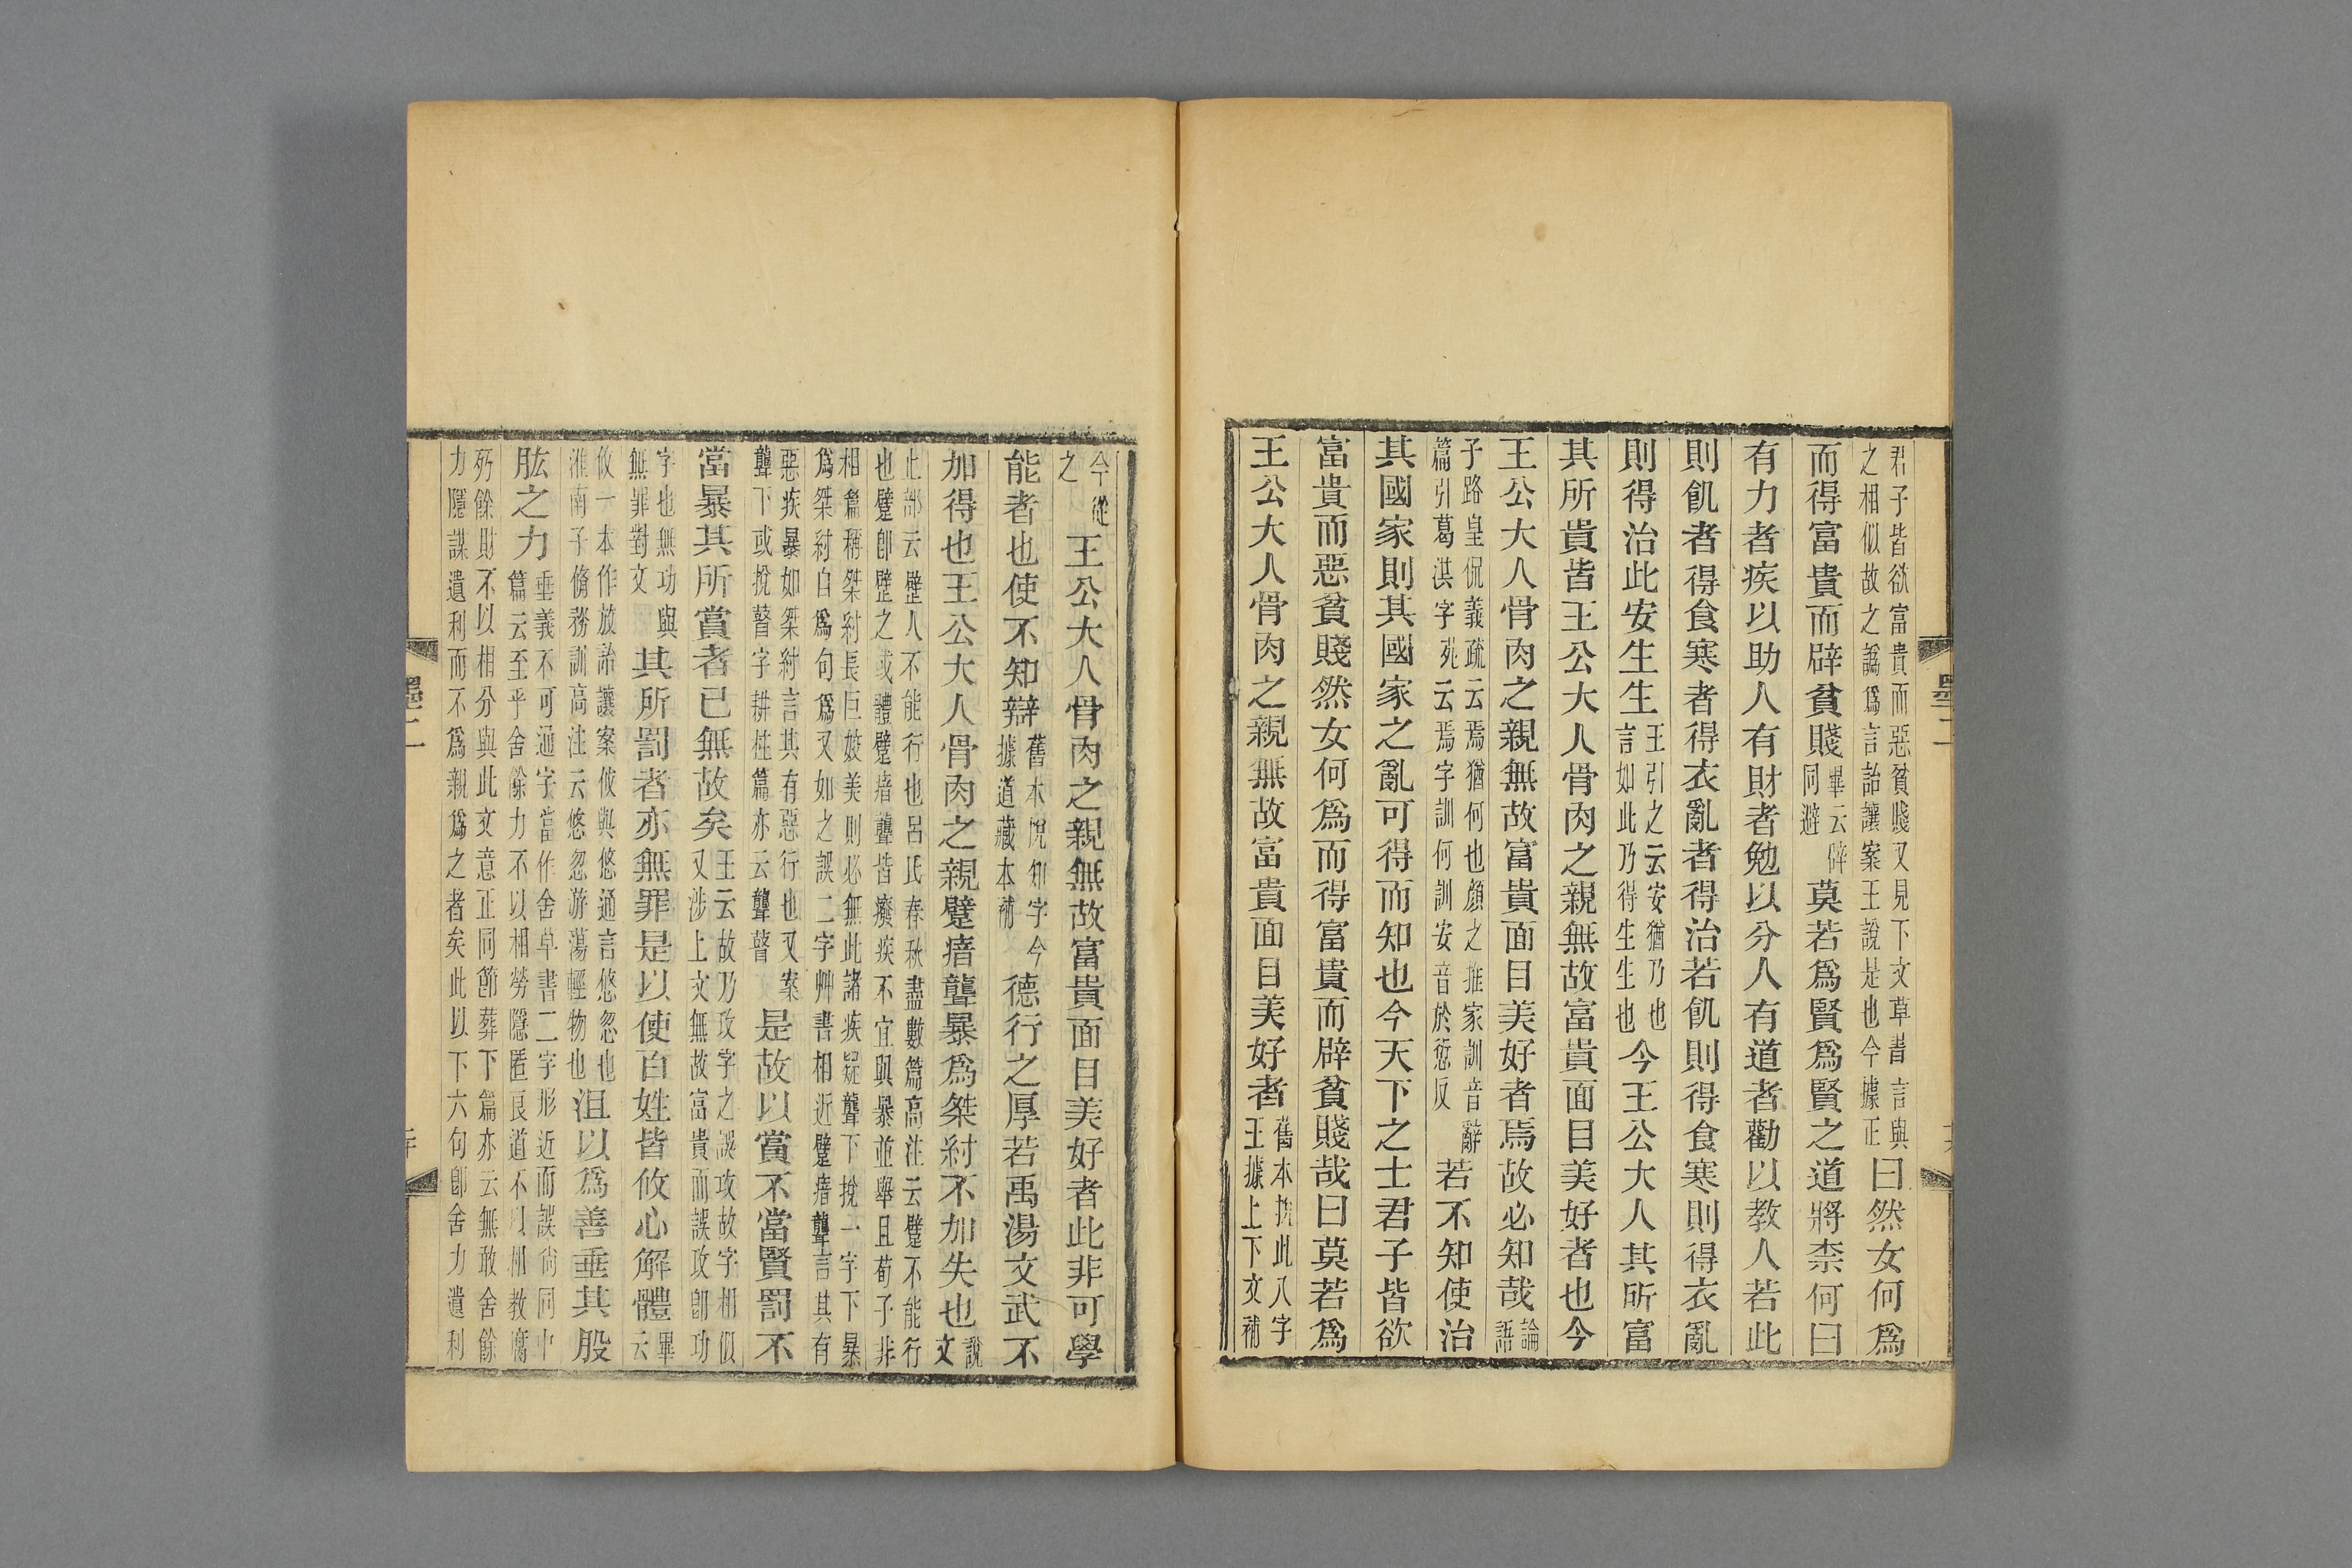 君子皆欲富貴而惡貧賤又見下文草書言與
之相似故之譌爲言詒讓案王說是也今據正
曰然女何爲
而得富貴而辟貧賤
畢云辟
同避
莫若爲賢爲賢之道將柰何曰
有力者疾以助人有財者勉以分人有道者勸以教人若此
則飢者得食寒者得衣亂者得治若飢則得食寒則得衣亂
則得治此安生生
王引之云安猶乃也
言如此乃得生生也
今王公大人其所富
其所貴皆王公大人骨肉之親無故富貴面目美好者也今
王公大人骨肉之親無故富貴面目美好者焉故必知哉
論
語
子路皇侃義疏云焉猶何也顏之推家訓音辭
篇引葛洪字苑云焉字訓何訓安音於愆反
若不知使治
其國家則其國家之亂可得而知也今天下之士君子皆欲
富貴而惡貧賤然女何爲而得富貴而辟貧賤哉曰莫若爲
王公大人骨肉之親無故富貴面目美好者
舊本捝此八字
王據上下文補
墨二
今從
之
王公大人骨肉之親無故富貴面目美好者此非可學
能者也使不知辯
舊本捝知字今
據道藏本補
德行之厚若禹湯文武不
加得也王公大人骨肉之親躄瘖聾暴爲桀紂不加失也
說
文
止部云躄人不能行也呂氏春秋盡數篇高注云躄不能行
也躄卽躄之或體躄瘖聾皆癈疾不宜與暴並舉且荀子非
相篇稱桀紂長巨姣美則必無此諸疾疑聾下捝一字下暴
爲桀紂自爲句爲又如之誤二字艸書相近躄瘖聾言其有
惡疾暴如桀紂言其有惡行也又案
聾下或捝瞽字耕柱篇亦云聾瞽
是故以賞不當賢罰不
當暴其所賞者已無故矣
王云故乃攻字之誤攻故字相似
又涉上文無故富貴而誤攻卽功
字也無功與
無罪對文
其所罰者亦無罪是以使百姓皆攸心解體
畢
云
攸一本作放詒讓案攸與悠通言悠忽也
淮南子脩務訓高注云悠忽游蕩輕物也
沮以爲善垂其股
肱之力
垂義不可通字當作舍草書二字形近而誤尚同中
篇云至乎舍餘力不以相勞隱匿良道不以相教腐
㱙餘財不以相分與此文意正同節葬下篇亦云無敢舍餘
力隱謀遺利而不爲親爲之者矣此以下六句卽舍力遺利
墨二